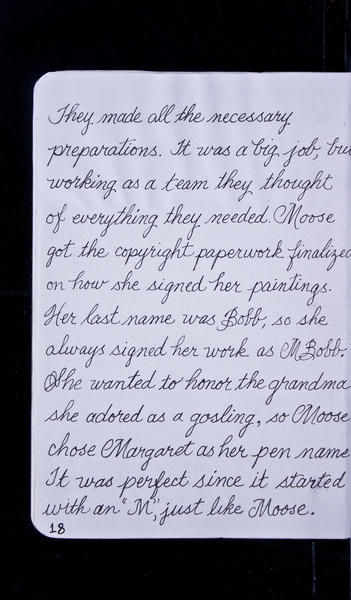 They made all the necessary
preparations. It was a big job, bu
working as a team they thought
of everything they needed. Moose
got the copyright paperwork finalized
on how she signed her paintings.
Her last name was Bobb, so she
always signed her work as MBobb.
She wanted to honor the grandma
she adored as a gosling, so Moose
chose Margaret as her pen name
It was perfect since it started
with an "M", just like Moose.
18